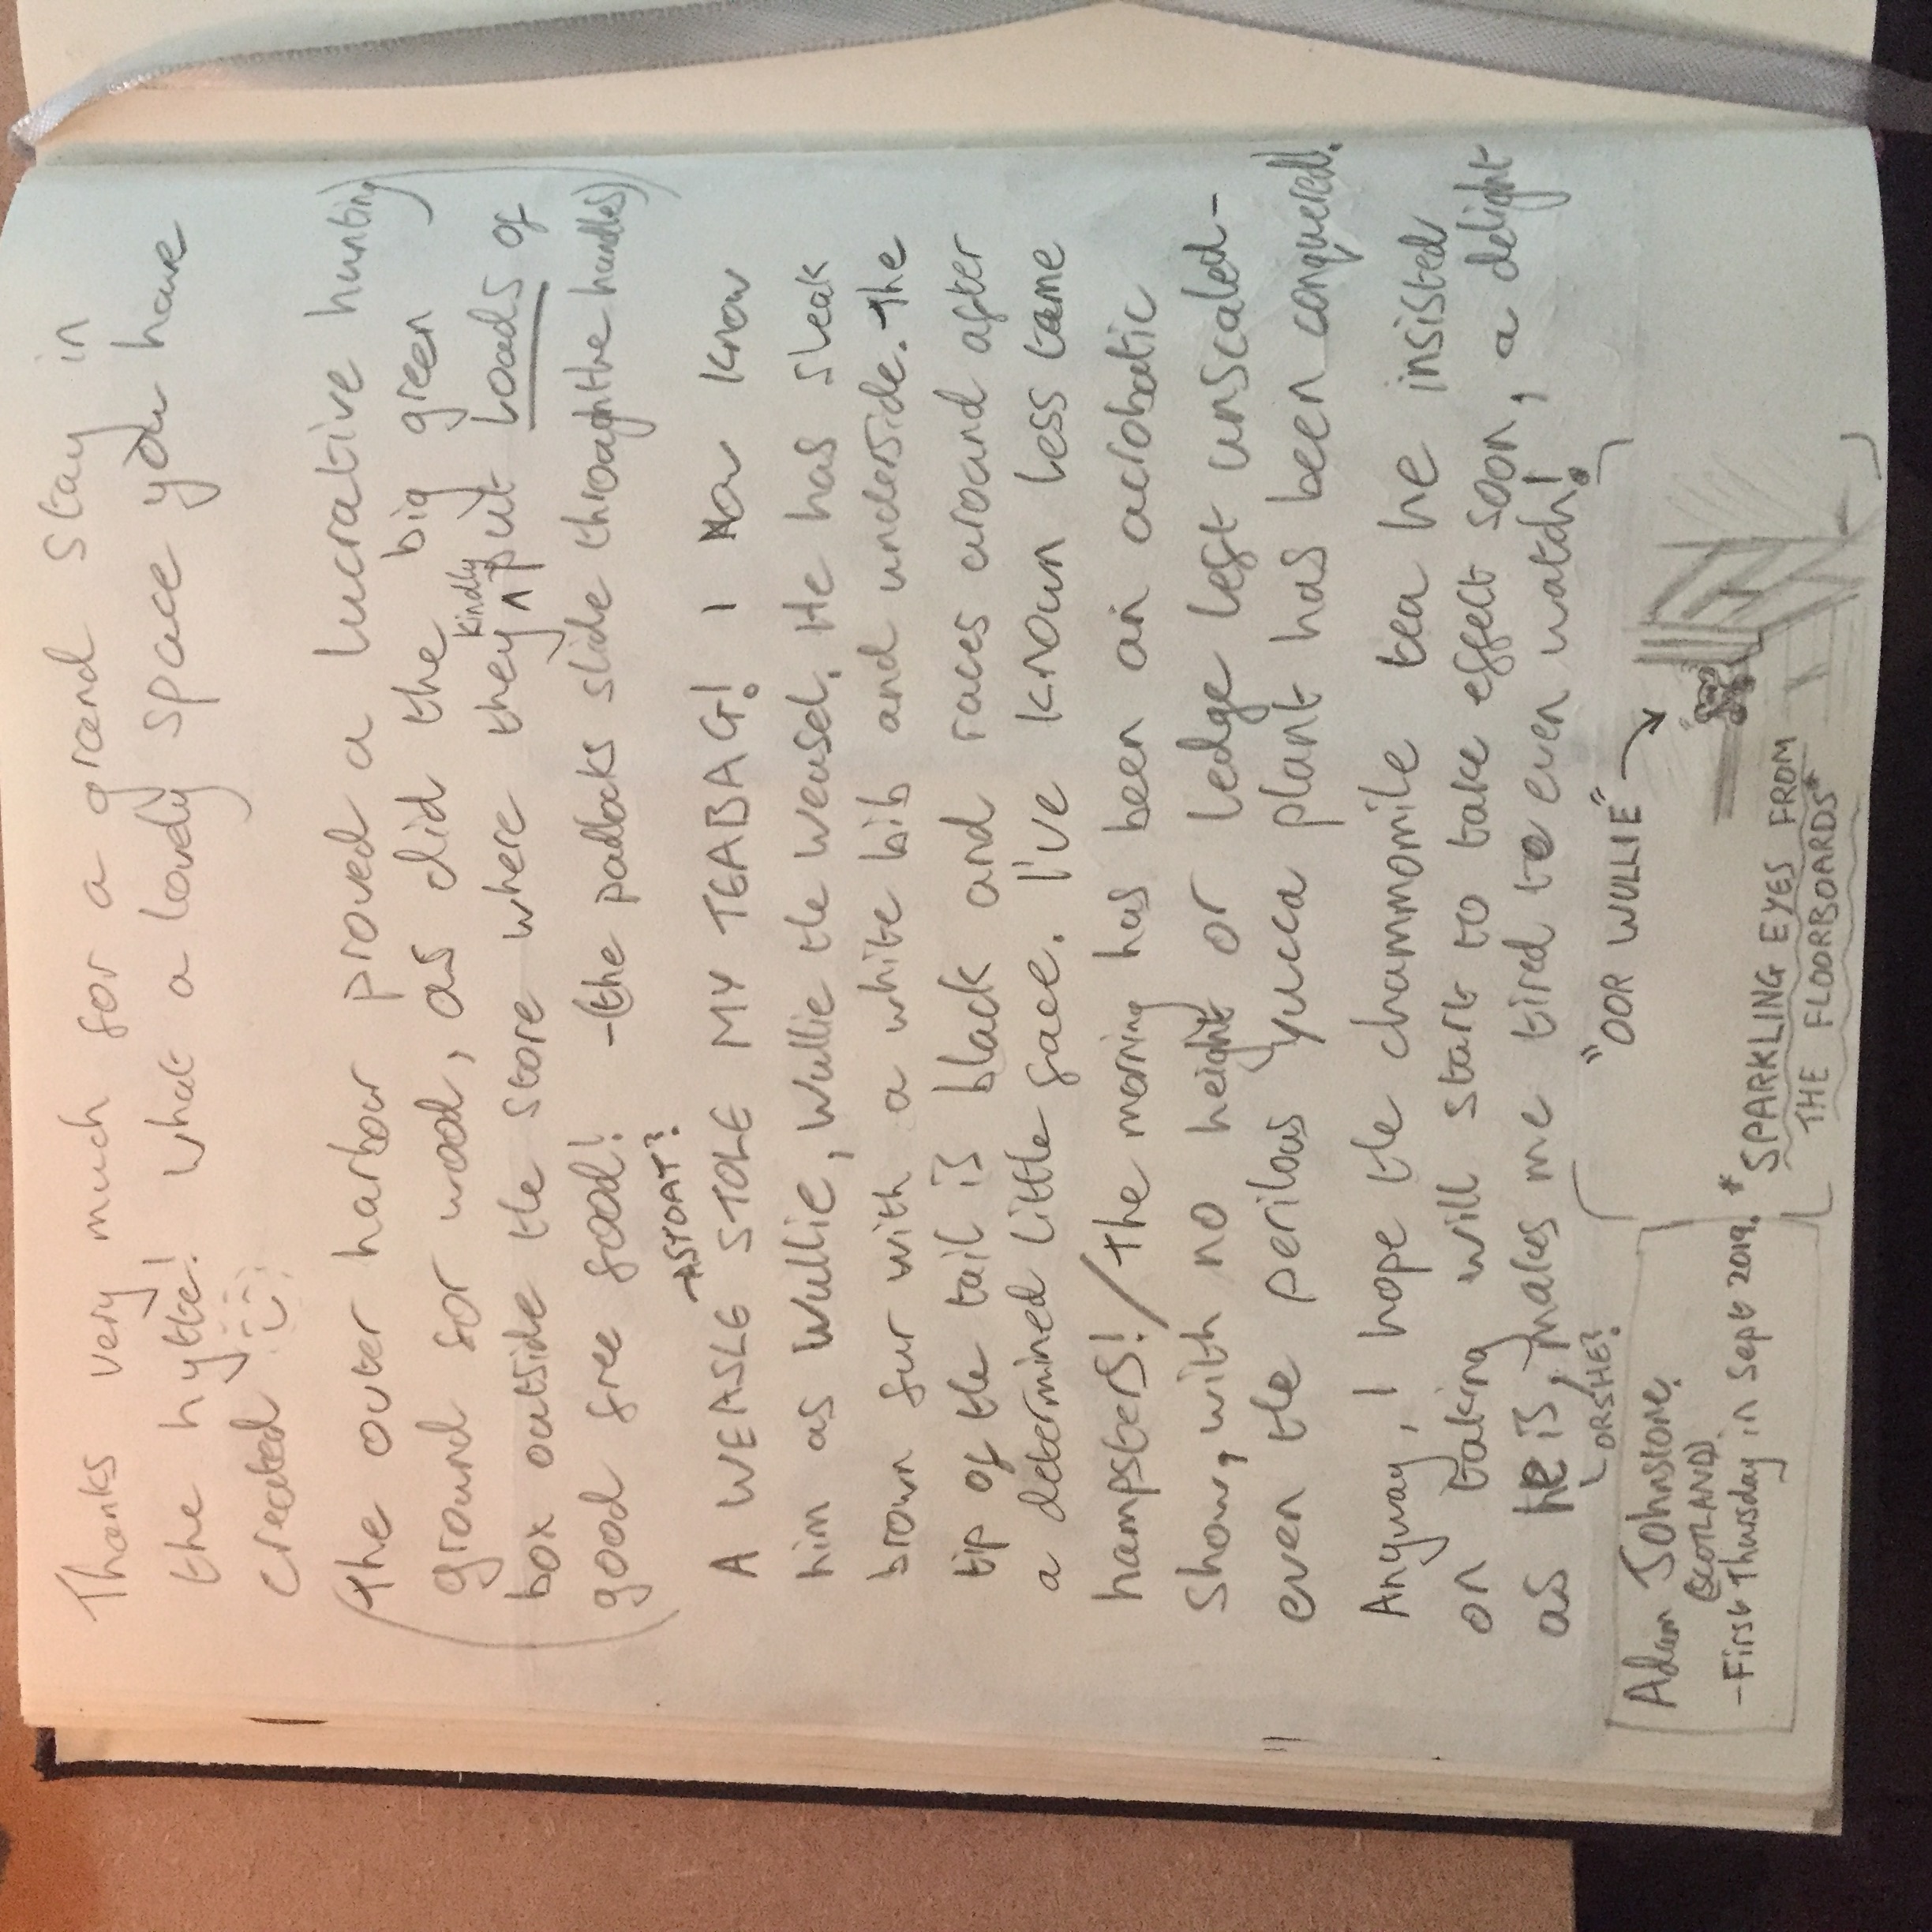 Thanks very much for a grand stay in
the hytte! What a lovely space you have
created
(The outer harbour proved a lucrative hunting
ground for wood, as did the big green
box outside the store where they kindly put Loads of
good free food! -(the padlocks slide through the handles))
→ASTOAT?
A WEASLE STOLE MY TEABAG! I now know
him as Wullie, Wullie the weasel. He has sleak
brown fur with a white bib and underside. The
tip of the tail is black and races around after
a determined little face. I've known less tame
hampsters! / The morning has been an acrobatic
show, with no height or ledge left unscaled-
even the perilous yucca plant has been conquered!.
Anyway, I hope the chammomile tea he insisted
on taking will start to take effect soon, a delight
as he is, makes me tired to even watch!
ORSHE?
Adam Johnstone.
(SCOTLAND).
-First Thursday in Sept 2019.
"OOR WULLIE" →
*SPARKLING EYES FROM
THE FLOORBOARDS*